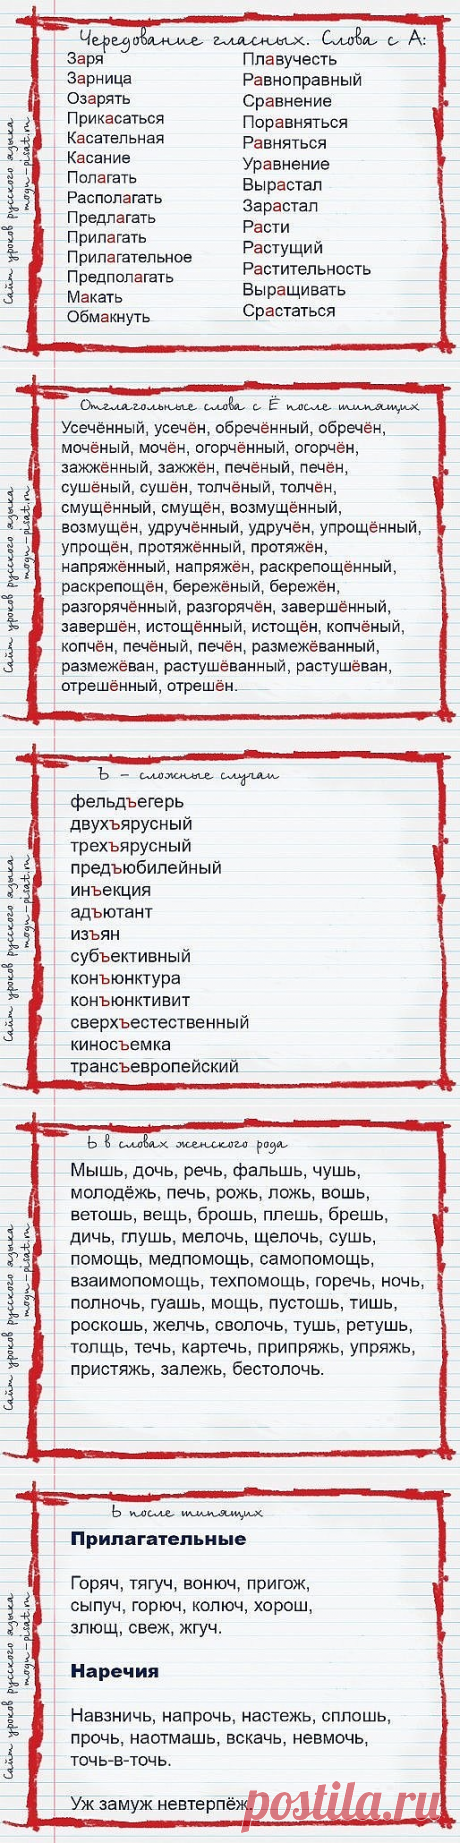 Чередование гласных. Слова с А:
Заря
Зарница
Озарять
Прикасаться
Касательная
Касание
Полагать
Располагать
Предлагать
Прилагать
Прилагательное
Предполагать
Макать
Обмакнуть
Плавучесть
Равноправный
Сравнение
Поравняться
Равняться
Уравнение
Вырастал
Зарастал
Расти
Растущий
Растительность
Выращивать
Срастаться
Сайт уроков русского языка
mogu-pisat.ru
Отглагольные слова с Ё после шипящих
Усечённый, усечён, обречённый, обречён,
мочёный, мочён, огорчённый, огорчён,
зажжённый, зажжён, печёный, печён,
сушёный, сушён, толчёный, толчён,
смущённый, смущён, возмущённый,
возмущён, удручённый, удручён, упрощённый,
упрощён, протяжённый, протяжён,
напряжённый, напряжён, раскрепощённый,
раскрепощён, бережёный, бережён,
разгорячённый, разгорячён, завершённый,
завершён, истощённый, истощён, копчёный,
копчён, печёный, печён, размежёванный,
размежёван, растушёванный, растушёван,
отрешённый, отрешён.
Сайт уроков русского языка
mogu-pisat.ru
Ъ - сложные случаи
фельдъегерь
двухъярусный
трехъярусный
предъюбилейный
инъекция
адъютант
изъян
субъективный
конъюнктура
конъюнктивит
сверхъестественный
киносъемка
трансъевропейский
Сайт уроков русского языка
mogu-pisat.ru
Ь в словах женского рода
Мышь, дочь, речь, фальшь, чушь,
молодёжь, печь, рожь, ложь, вошь,
ветошь, вещь, брошь, плешь, брешь,
дичь, глушь, мелочь, щелочь, сушь,
помощь, медпомощь, самопомощь,
взаимопомощь, техпомощь, горечь, ночь,
полночь, гуашь, мощь, пустошь, тишь,
роскошь, желчь, сволочь, тушь, ретушь,
толщь, течь, картечь, припряжь, упряжь,
пристяжь, залежь, бестолочь.
Сайт уроков русского языка
mogu-pisat.ru
Ь после шипящих
Прилагательные
Горяч, тягуч, вонюч, пригож,
сыпуч, горюч, колюч, хорош,
злющ, свеж, жгуч.
Наречия
Навзничь, напрочь, настежь, сплошь,
прочь, наотмашь, вскачь, невмочь,
точь-в-точь.
Уж замуж невтерпёж.
Сайт уроков русского языка
mogu-pisat.ru
postila.ru